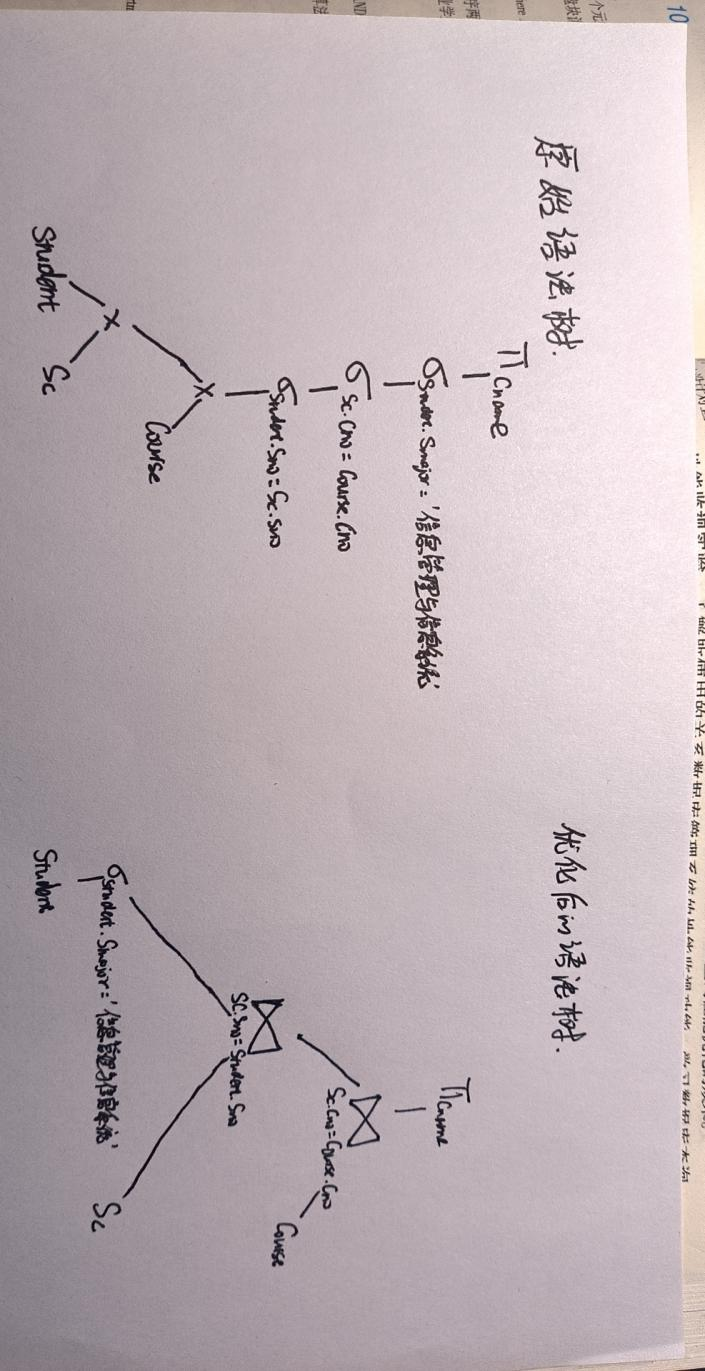 10
原始语法树.
π Cname
σ Student.Smajor = '信息管理与信息系统'
σ Sc.Cno = Course.Cno
σ Student.Sno = Sc.Sno
×
Course
×
Student
Sc
优化后的语法树.
π Cname
⋈
Sc.Cno = Course.Cno
Course
⋈
SC.Sno = Student.Sno
σ Student.Smajor = '信息管理与信息系统'
Sc
Student